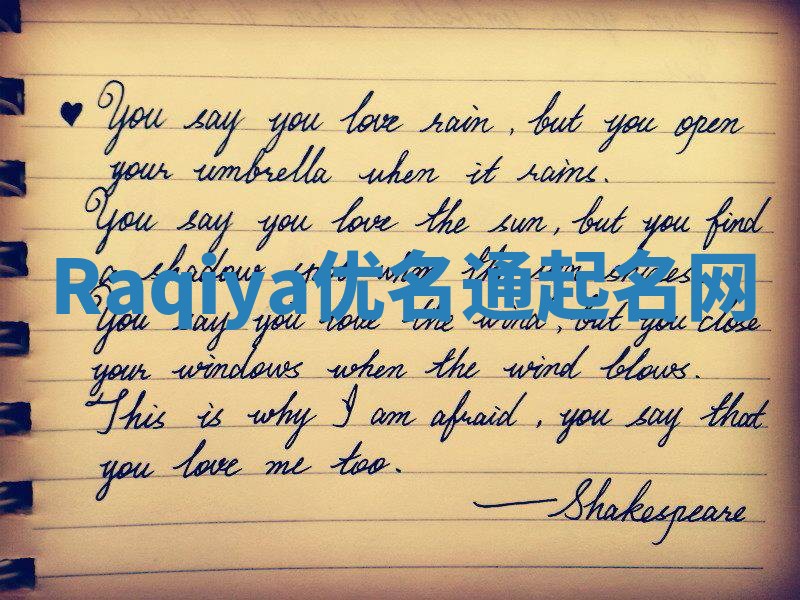 ♥ You say you love rain, but you open
your umbrella when it rains.
You say you love the sun, but you find
a shadow spot when the sun shines.
Raqiya优名通起名网
You say you love the wind, but you close
your windows when the wind blows.
This is why I am afraid, you say that
you love me too.
—Shakespeare